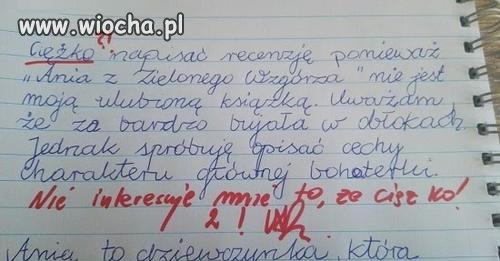 www.wiocha.pl
?!
Ciężko napisać recenzję ponieważ
"Ania z Zielonego Wzgórza" nie jest
moją ulubioną książką. Uważam
że za bardzo bujała w obłokach.
Jednak spróbuję opisać cechy
charakteru głównej bohaterki.
Nie interesuje mnie to, że ciężko!
2!
Ania to dziewczynka, która